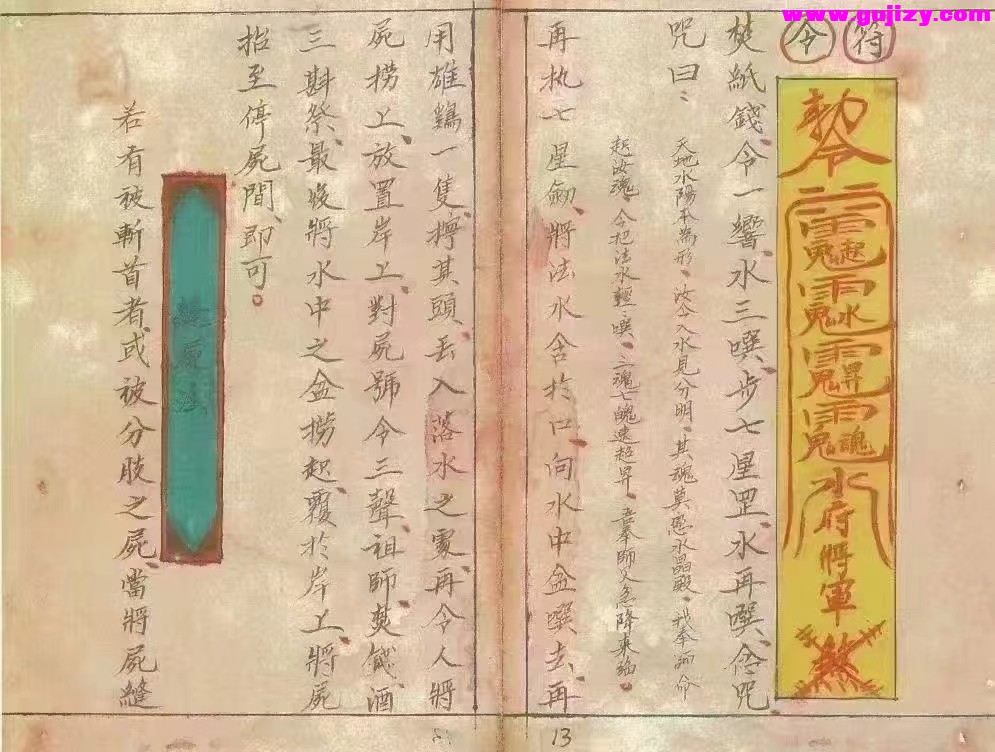 www.gojizy.com
符令
勅令
雷鬼起
雷鬼水
雷鬼昇
雷鬼魂
水府將軍
煞
焚紙錢、令一響、水三噀、步七星罡、水再噀、念咒
咒曰：
天地水陽本為形、汝今入水見分明、其魂莫戀水晶殿、我奉師命
起汝魂、今把法水輕輕噀、三魂七魄速超昇、吾奉師父急降來臨。
再执七星劍、將法水含於口、向水中盆噀去、再
用雄鷄一隻、擰其頭、丟入落水之處、再令人將
屍撈上、放置岸上、對屍號令三聲、祖師焚錢、酒
三斟祭、最後將水中之盆撈起、覆於岸上、將屍
抬至停屍間、即可。
若有被斬首者、或被分肢之屍、當將屍縫
13